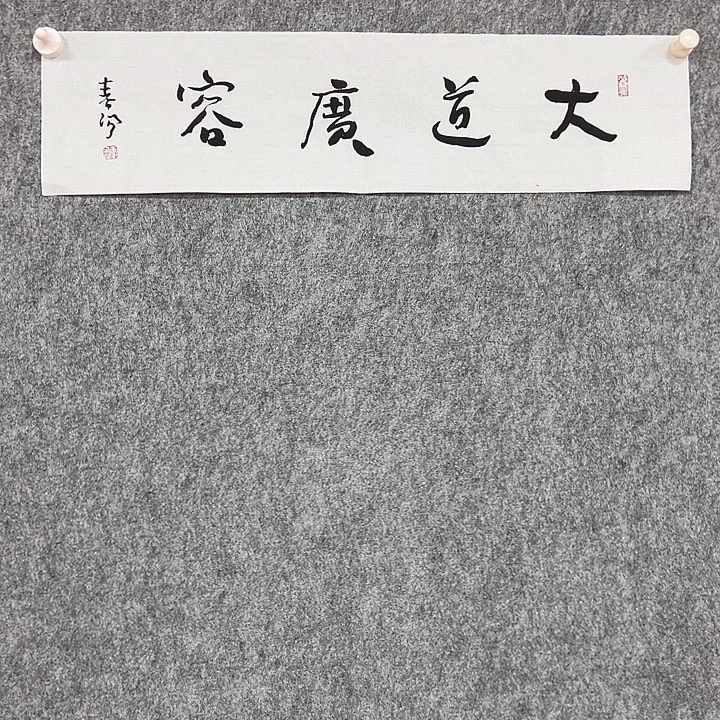 大道廣容